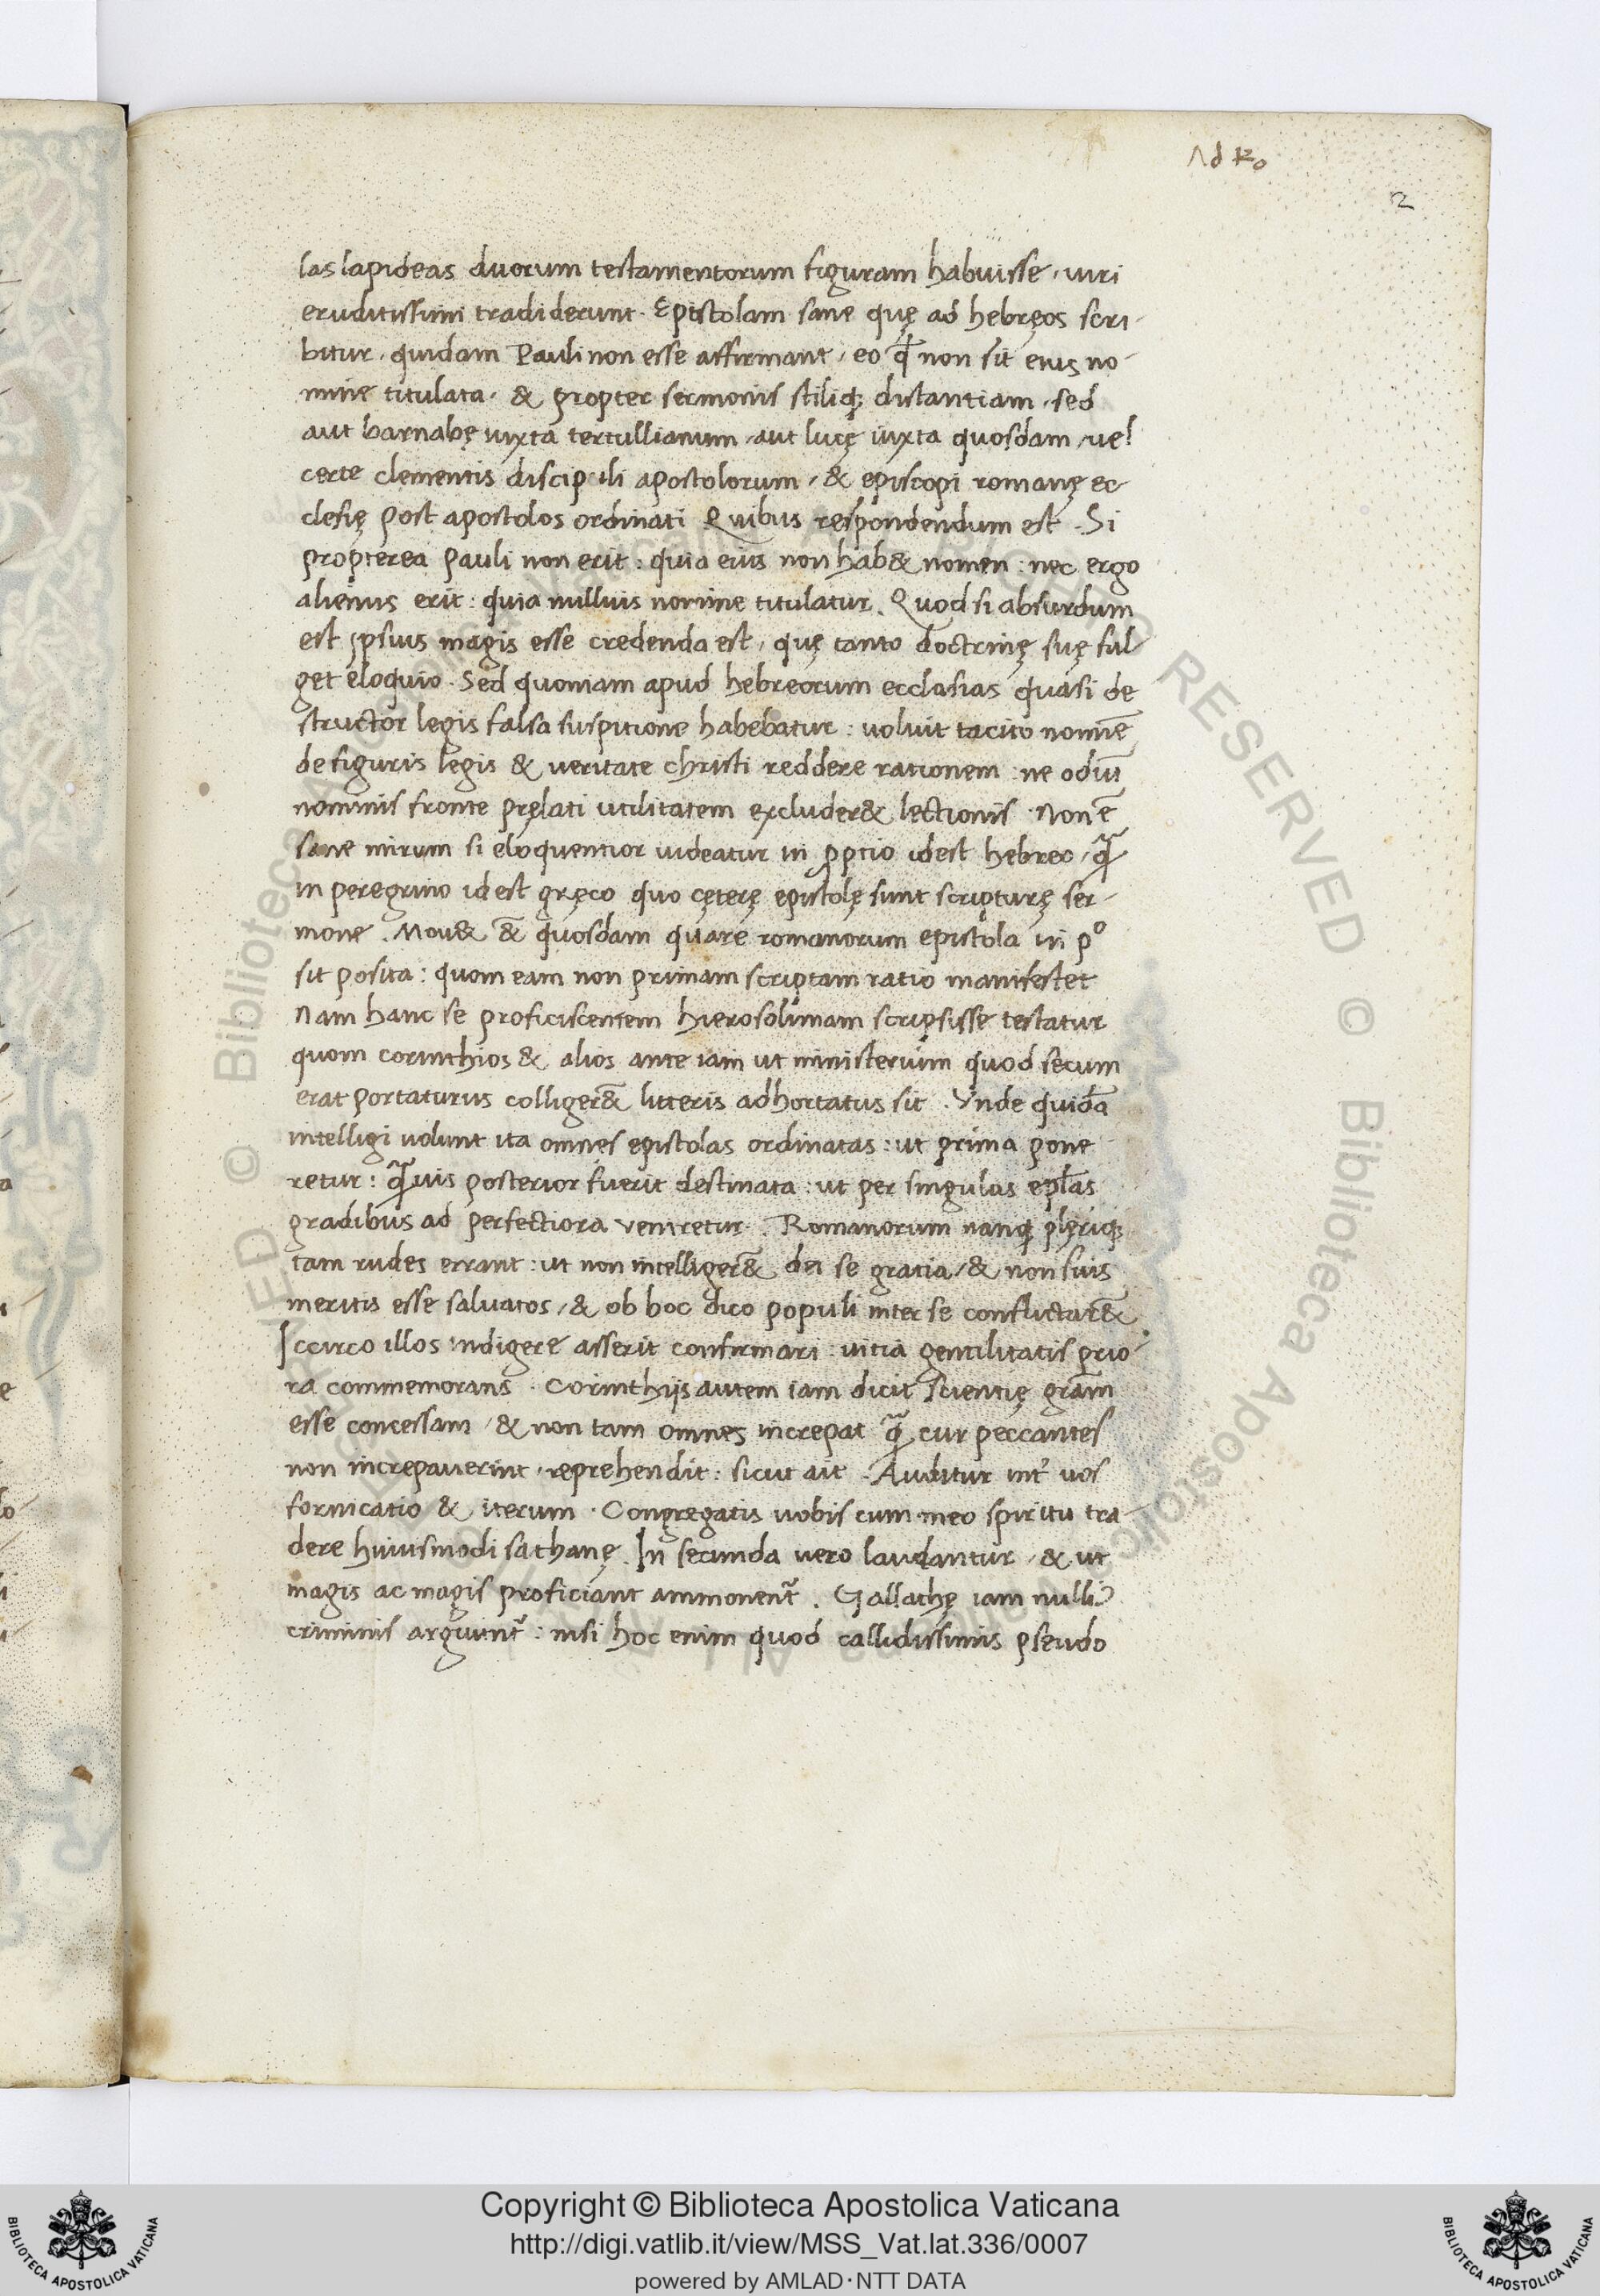 Ad Ro
2
las lapideas duorum testamentorum figuram habuisse, uiri
eruditissimi tradiderunt. Epistolam sane quę ad hebręos scri-
bitur, quidam Pauli non esse affirmant, eo qđ non sit eius no-
mine titulata, & propter sermonis stiliq; distantiam, sed
aut barnabę iuxta tertullianum, aut lucę iuxta quosdam, uel
certe clementis discipuli apostolorum, & episcopi romanę ec
clesię post apostolos ordinati Quibus respondendum est. Si
propterea pauli non erit: quia eius non hab& nomen: nec ergo
alienius erit: quia nullius nomine titulatur. Quod si absurdum
est ipsius magis esse credenda est, quę tanto doctrinę suę ful
get eloquio. Sed quoniam apud hebreorum ecclasias quasi de
structor legis falsa suspitione habebatur: uoluit tacito nomīe
de figuris legis & ueritate christi reddere rationem: ne odiū
nominis fronte pręlati utilitatem excluder& lectionis. Non ē
sane mirum si eloquentior uideatur in ꝓprio idest hebreo, q̃
in peregrino id est gręco quo cęterę epistolę sunt scripturę ser-
mone. Mou& &̄ quosdam quare romanorum epistola in pº
sit posita: quom eam non primam scriptam ratio manifestet
Nam hanc se proficiscentem hierosolimam scripsisse testatur
quom corinthios & alios ante iam ut ministerium quod secum
erat portaturus colliger&̄ litteris adhortatus sit. Vnde quidā
intelligi uolunt ita omnes epistolas ordinatas: ut prima pone
retur: q̃uis posterior fuerit destinata: ut per singulas epl̄as
gradibus ad perfectiora veniretur. Romanorum nanq; plęriq;
tam rudes errant: ut non intelliger&̄ dei se gratia, & non suis
meritis esse saluatos, & ob hoc dico populi inter se conflictar&̄
Iccirco illos indigere asserit confirmari: uitia gentilitatis prio-
ra commemorans. Corinthijs autem iam dicit scientię grām
esse concessam, & non tam omnes increpat q̃ cur peccantes
non increpauerint, reprehendit: sicut ait. Auditur int̄ uos
fornicatio & iterum. Congregatis uobis cum meo spiritu tra-
dere huiusmodi sathanę. In secunda uero laudantur, & ut
magis ac magis proficiant ammonent̄. Gallathę iam nulliꝰ
criminis arguunt̄: nisi hoc enim quod callidissimis pseudo
Copyright © Biblioteca Apostolica Vaticana
http://digi.vatlib.it/view/MSS_Vat.lat.336/0007
powered by AMLAD·NTT DATA
BIBLIOTECA APOSTOLICA VATICANA
BIBLIOTECA APOSTOLICA VATICANA